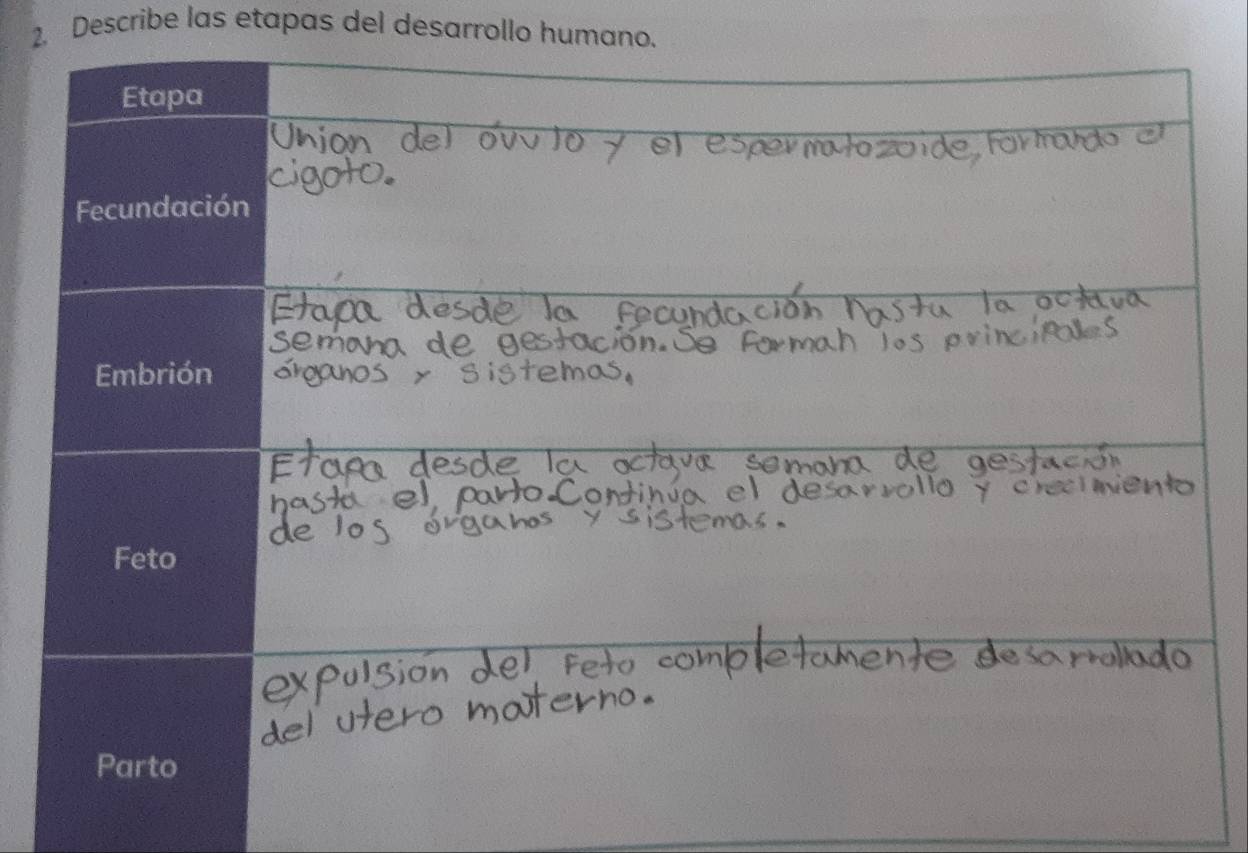 2. Describe las etapas del desarrollo humano.
Etapa
Fecundación
Union del óvulo y el espermatozoide, formando el
cigoto.
Embrión
Etapa desde la fecundación hasta la octava
semana de gestación. Se forman los principales
órganos y sistemas.
Feto
Etapa desde la octava semana de gestación
hasta el parto. Continua el desarrollo y crecimiento
de los órganos y sistemas.
Parto
expulsión del feto completamente desarrollado
del utero materno.